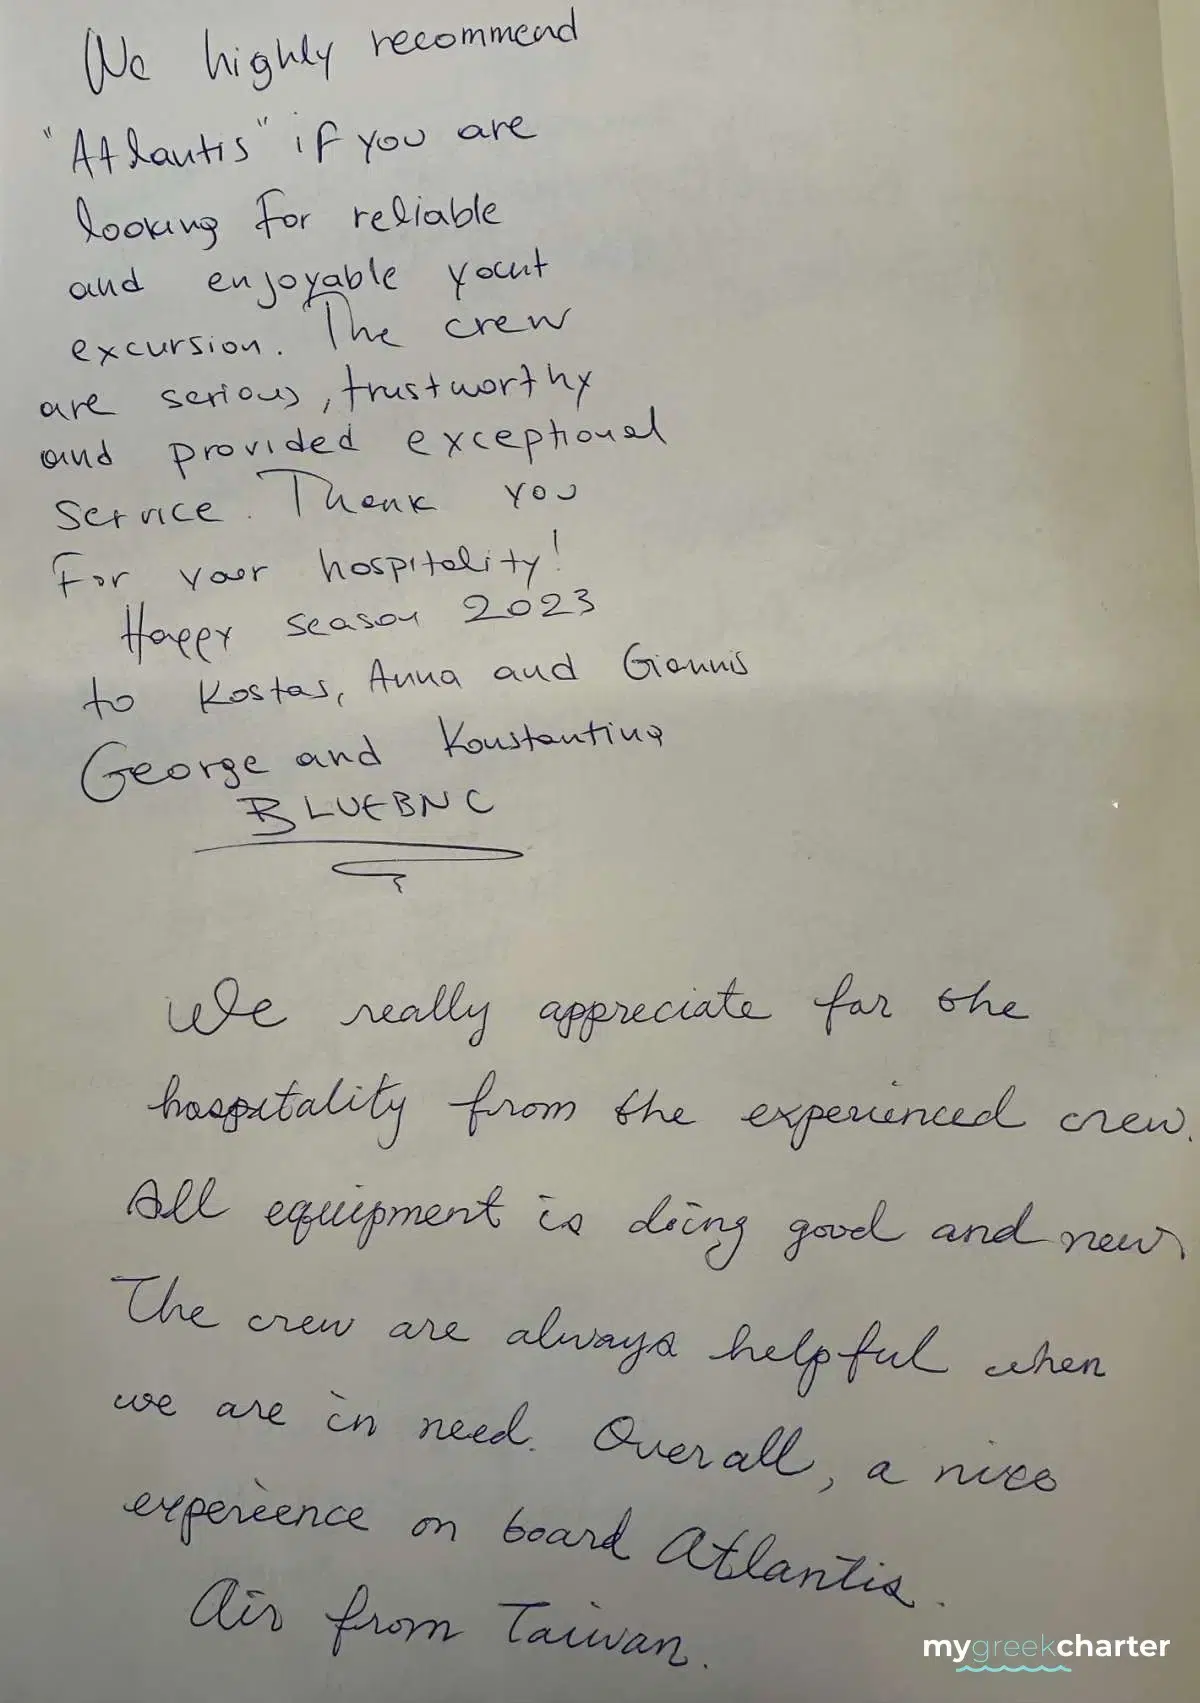 We highly recommend
"Atlantis" if you are
looking for reliable
and enjoyable yacut
excursion. The crew
are serious, trustworthy
and provided exceptional
service. Thank you
For your hospitality!
Happy season 2023
to Kostas, Anna and Giannis
George and Konstantina
BLUEBNC
We really appreciate for the
hospitality from the experienced crew.
All equipment is doing good and new.
The crew are always helpful when
we are in need. Overall, a nice
experience on board Atlantis.
Air from Taiwan.
mygreekcharter